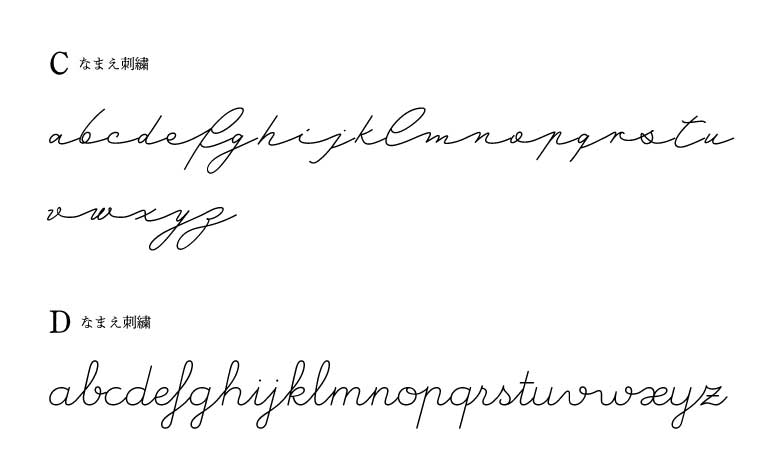 C なまえ刺繍
abcdefghijklmnopqrstu
vwxyz
D なまえ刺繍
abcdefghijklmnopqrstuvwxyz